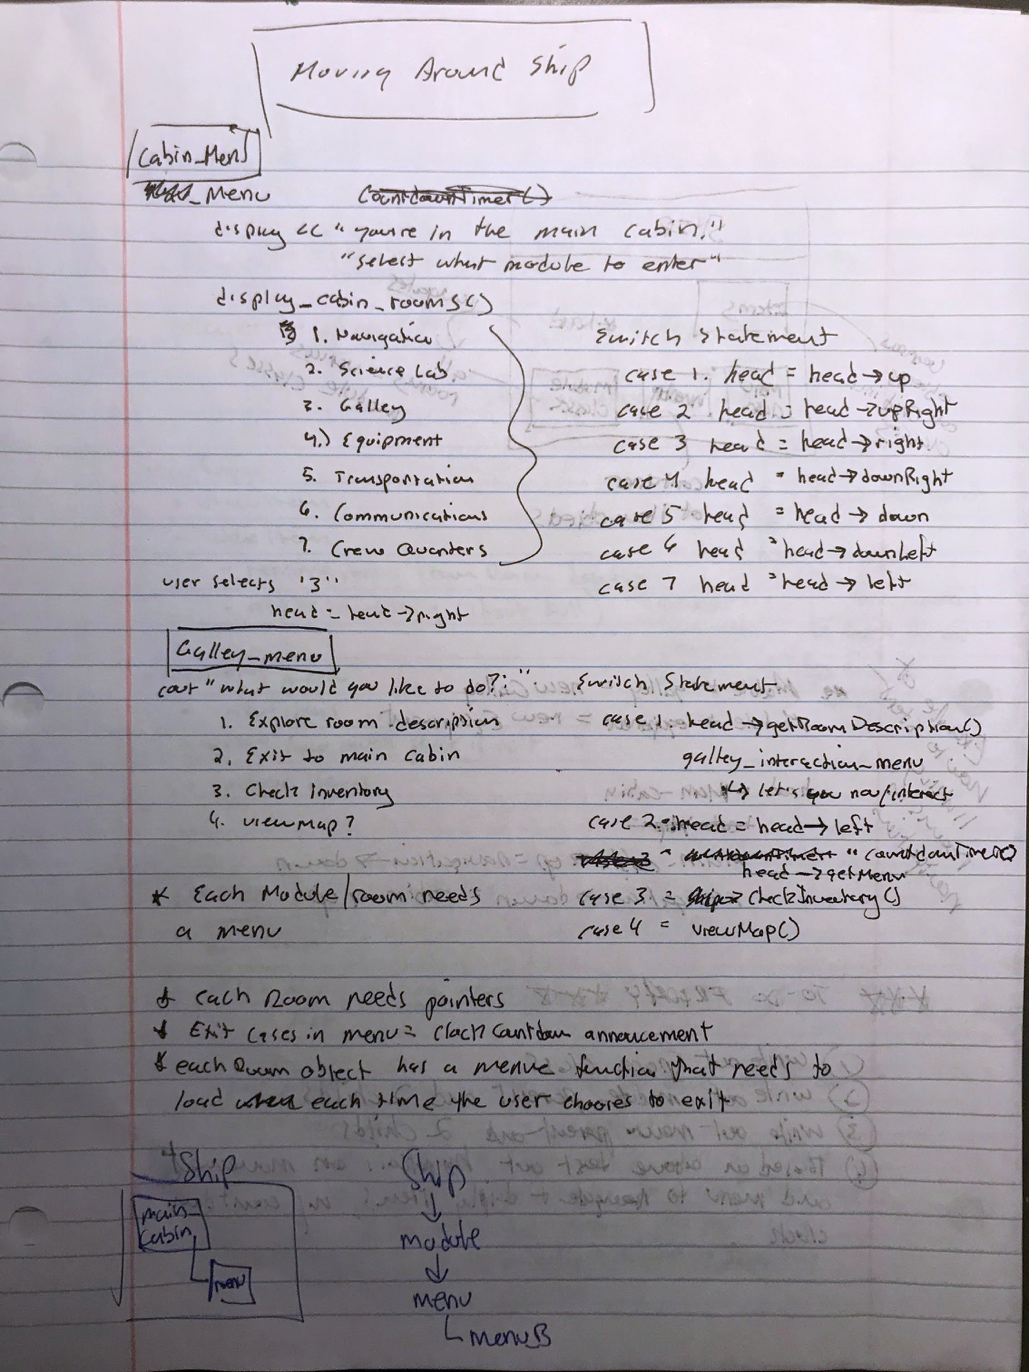 Moving Around Ship
Cabin_Menu
_Menu
CountdownTimer()
display << "you're in the main cabin."
"select what module to enter"
display_cabin_rooms()
1. Navigation
2. Science Lab.
3. Galley
4.) Equipment
5. Transportation
6. Communications
7. Crew Quarters
Switch Statement
case 1. head = head→up
case 2 head = head→upRight
case 3 head = head→right
case 4 head = head→downRight
case 5 head = head→down
case 6 head = head→downLeft
case 7 head = head→left
user selects "3"
head = head→right
Galley_menu
cout "what would you like to do?:"
1. Explore room description
2. Exit to main cabin
3. Check Inventory
4. viewMap?
Switch Statement
case 1. head→getRoomDescription()
galley_interaction_menu
↳ let's you now/interact
case 2. head = head→left
" countdownTimer()
head→getMenu
case 3 = CheckInventory()
case 4 = viewMap()
* Each Module/room needs
a menu
* each Room needs pointers
* Exit cases in menu = Clock Countdown annoucement
* each Room object has a menue function that needs to
load each time the user chooses to exit
Ship
main_
Cabin
menu
Ship
↓
module
↓
menu
↳ menuB